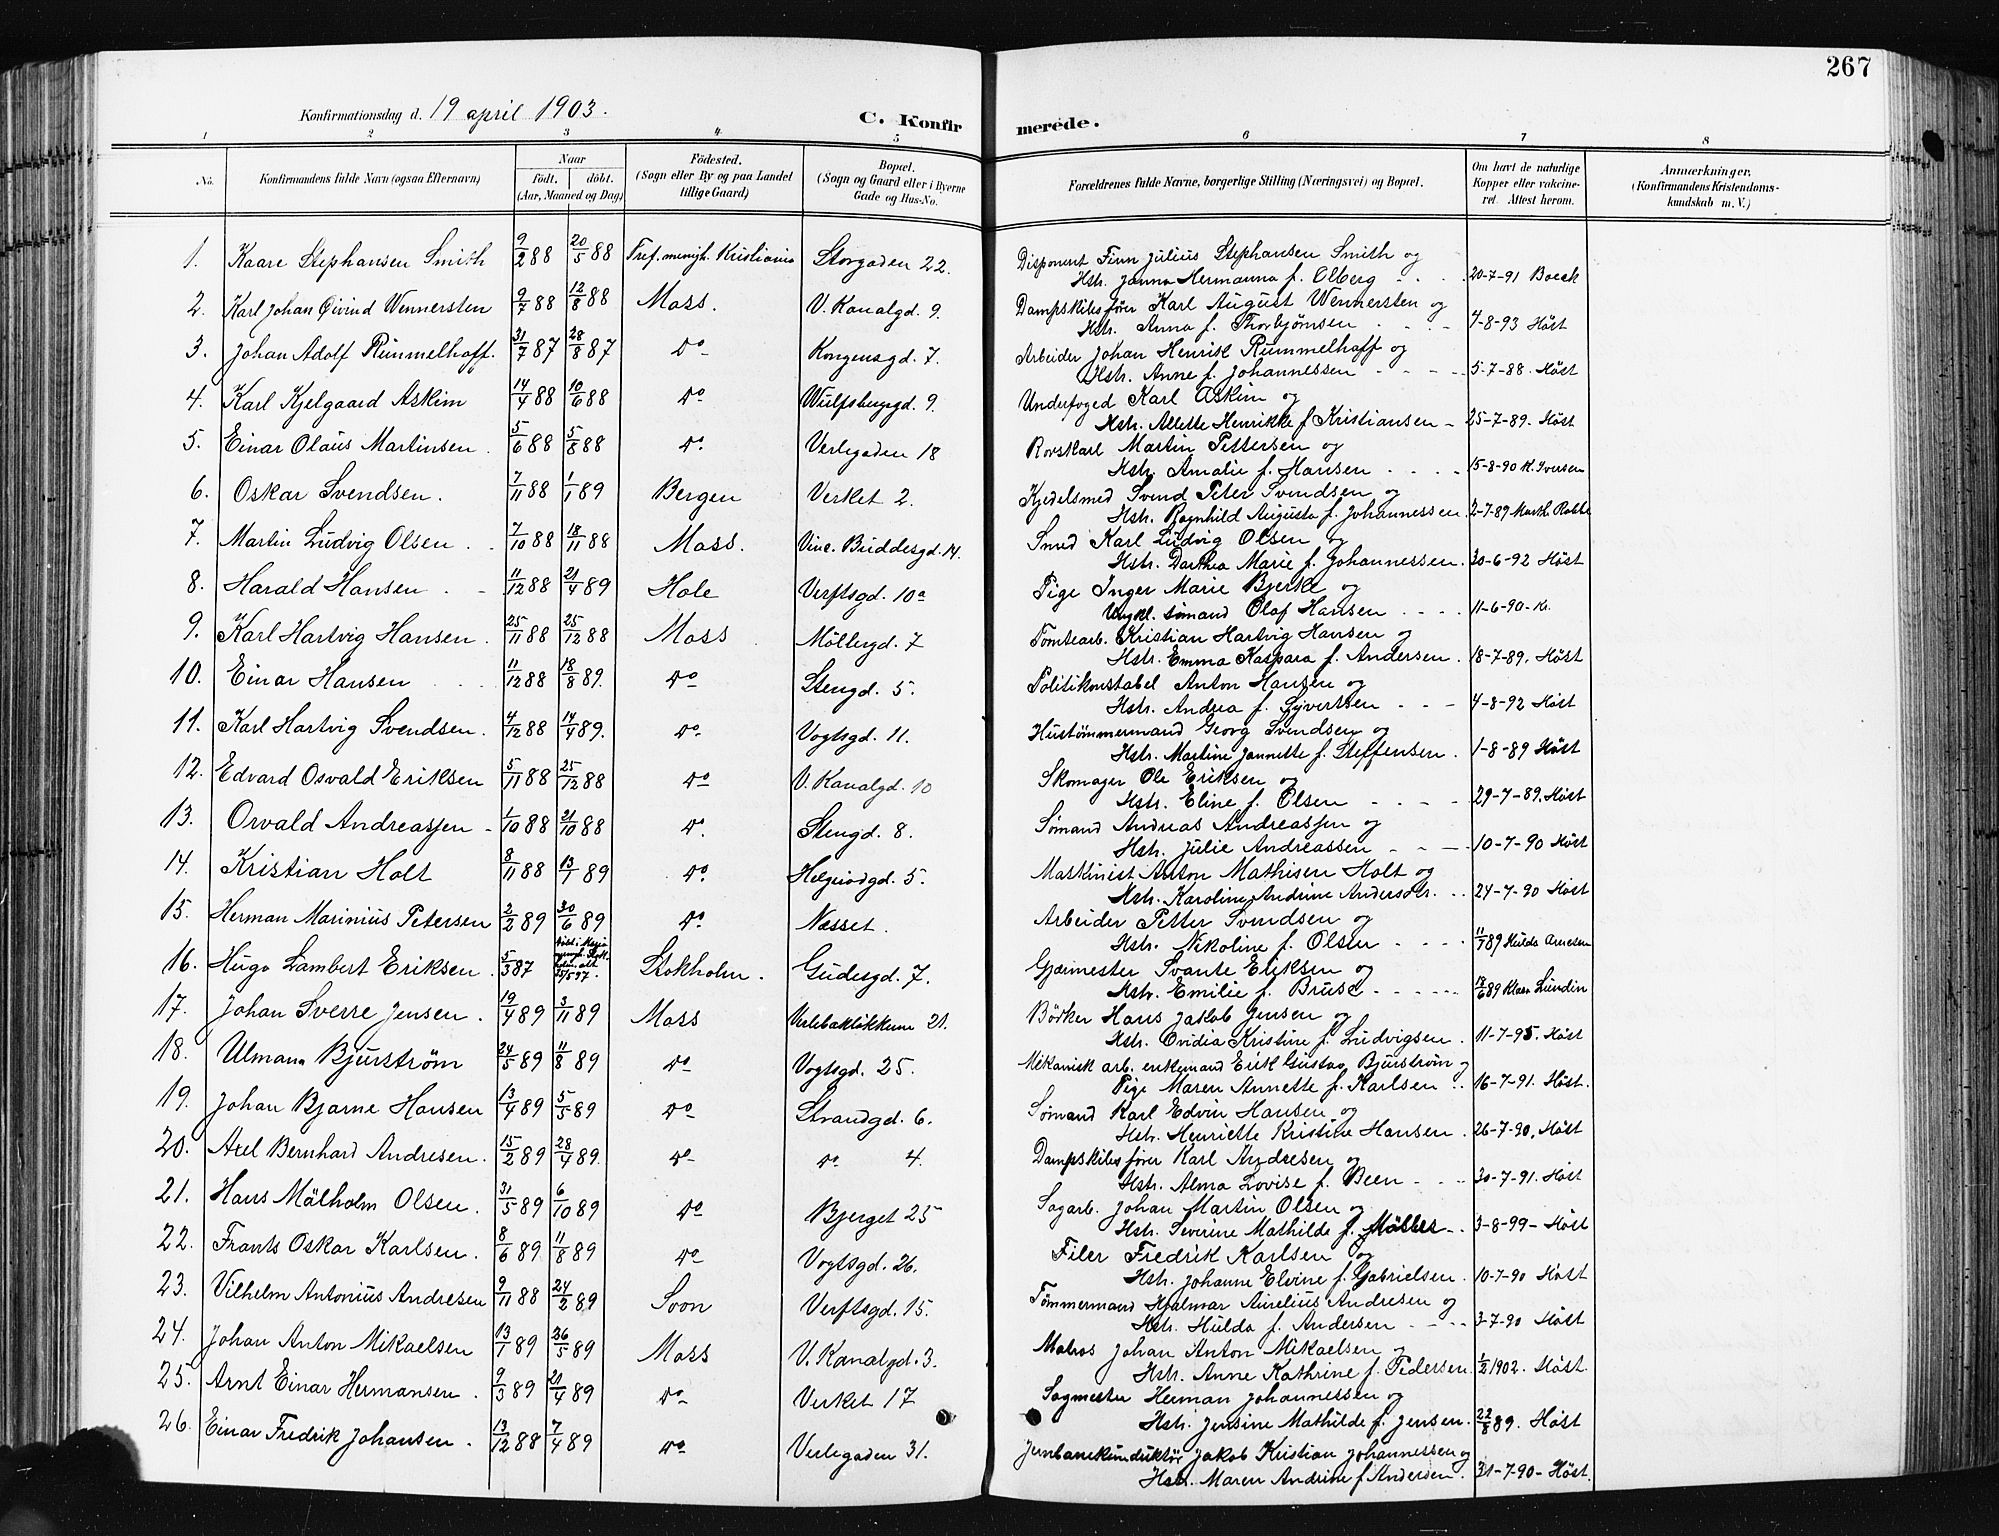 267
Konfirmationsdag d. 19 april 1903.
C. Konfirmerede.
1 2 3 4 5 6 7 8
No.
Konfirmandens fulde Navn (ogsaa Efternavn)
Naar
Født. døbt.
(Aar, Maaned og Dag)
Födested.
(Sogn eller By og paa Landet
tillige Gaard)
Bopæl.
(Sogn og Gaard eller i Byerne
Gade og Hus-No.
Forældrenes fulde Navne, borgerlige Stilling (Næringsvei) og Bopæl.
Om havt de naturlige
Kopper eller vakcine-
ret. Attest herom.
Anmærkninger.
(Konfirmandens Kristendoms-
kundskab m. V.)
1. Kaare Stephansen Smith 9/2 88 20/5 88 Tref. menigh. Kristiania Storgaden 22. Disponent Finn Julius Stephansen Smith og
Hstr. Janna Hermanna f. Olberg 20-7-91 Boeck
2. Karl Johan Øivind Wennersten 9/7 88 12/8 88 Moss. V. Kanalgd. 9. Dampskibsfører Karl August Wennersten og
Hstr. Anna f. Thorbjørnsen 4-8-93 Höst
3. Johan Adolf Rummelhoff. 31/7 87 28/8 87 Do Kongensgd. 7. Arbeider Johan Henrik Rummelhoff og
Hstr. Anne f. Johannessen 5-7-88 Höst
4. Karl Kjelgaard Askim 14/4 88 10/6 88 Do Wulfsbergsgd. 9. Underfoged Karl Askim og
Hstr. Alette Henrikke f Kristiansen 25-7-89. Höst
5. Einar Olaus Martinsen 5/6 88 5/8 88 Do Verlegaden 18 Rorskarl Martin Pettersen og
Hstr. Amalie f. Hansen 15-8-90 K. Iversen
6. Oskar Svendsen. 7/11 88 1/1 89 Bergen Verket 2. Kjedelsmed Svend Peter Svendsen og
Hstr. Ragnhild Augusta f. Johannessen 2-7-89 Marth.
7. Martin Ludvig Olsen 7/10 88 18/11 88 Moss. Vinc. Buddesgd. 14. Smed Karl Ludvig Olsen og
Hstr. Darthea Marie f. Johannessen. 30-6-92 Höst
8. Harald Hansen 11/12 88 21/4 89 Hole Verftsgd. 10a Pige Inger Marie Bjerke og
Ungkl. sømand Olaf Hansen 11-6-90-
9. Karl Hartvig Hansen 25/11 88 25/12 88 Moss Möllergd. 7 Tomtearb. Kristian Hartvig Hansen og
Hstr. Emma Kaspara f. Andersen 18-7-89. Höst
10. Einar Hansen 11/12 88 18/8 89. Do Stengd. 5. Politikonstabel Anton Hansen og
Hstr. Andrea f. Syvertsen 4-8-92 Höst
11. Karl Hartvig Svendsen. 4/12 88 14/4 89. Do Vogtsgd. 11. Hustømmermand Georg Svendsen og
Hstr. Martine Jannette f. Steffensen. 1-8-89 Höst
12. Edvard Osvald Eriksen 5/11 88 25/12 88 Do V. Kanalgd. 10 Skomager Ole Eriksen og
Hstr. Eline f. Olsen 29-7-89. Höst
13. Osvald Andreassen 1/10 88 21/10 88 Do. Stengd. 8. Sømand Andreas Andreassen og
Hstr. Julie Andreassen 10-7-90 Höst
14. Kristian Holt 8/11 88 13/1 89 Do. Helgerødgd. 5. Maskinist Anton Mathisen Holt og
Hstr. Karoline Andrine Andersdtr. 24-7-90 Höst
15. Herman Marinius Petersen 2/2 89 30/6 89 Do Næsset. Arbeider Petter Svendsen og
Hstr. Nikoline f. Olsen 11/7 89 Hulda Arnesen
16. Hugo Lambert Eriksen 5/3 87 Stokholm. Gudesgd. 7. Gjærmester Svante Eriksen og
Hstr. Emilie f. Bruse 18/6 89 Klara Lundin
17. Johan Sverre Jensen. 19/4 89 3/11 89 Moss Verlebakløkkerne 21. Bödker Hans Jakob Jensen og
Hstr. Ovidia Kristine f. Ludvigsen. 11-7-95. Höst
18. Ulmann Bjurström 24/5 89 11/8 89 Do Vogtsgd. 25. Mekanisk arb. enkemand Erik Gustav Bjurström og
Pige Maren Annette f. Karlsen 16-7-91. Höst.
19. Johan Bjarne Hansen 13/4 89 5/5 89 Do Strandgd. 6. Sømand Karl Edvin Hansen og
Hstr. Henriette Kristine Hansen. 26-7-90. Höst
20. Axel Bernhard Andresen. 15/2 89 28/4 89. Do Do 4. Dampskibsfører Karl Andresen og
Hstr. Alma Lovise f. Been 30-7-91. Höst
21. Hans Mälholm Olsen. 31/5 89 6/10 89 Do Bjerget 25 Sagarb. Johan Martin Olsen og
Hstr. Severine Mathilde f. 3-8-99- Höst
22. Frants Oskar Karlsen. 8/6 89 11/8 89 Do Vogtsgd. 26. Filer Fredrik Karlsen og
Hstr. Johanne Elvine f. Gabrielsen. 10-7-90 Höst
23. Vilhelm Antonius Andresen 9/11 88 24/2 89 Soon Verftsgd. 15. Tømmermand Hjalmar Aurelius Andresen og
Hstr. Hulda f. Andersen 3-7-90 Höst
24. Johan Anton Mikaelsen 13/1 89 26/5 89 Moss V. Kanalgd. 3. Matros Johan Anton Mikaelsen og
Hstr. Anne Kathrine f. Pedersen. 1/2 1902. Höst
25. Arnt Einar Hermansen. 9/3 89 21/4 89 Do Verket 17 Sagmester Herman Johannessen og
Hstr. Jensine Mathilde f. Jensen. 22/8 89. Höst
26. Einar Fredrik Johansen. 13/12 88 7/4 89 Do Verlegaden 31. Jernbanekunduktör Jakob Kristian Johannessen og
Hstr. Maren Andrine f Andersen. 31-7-90- Höst.